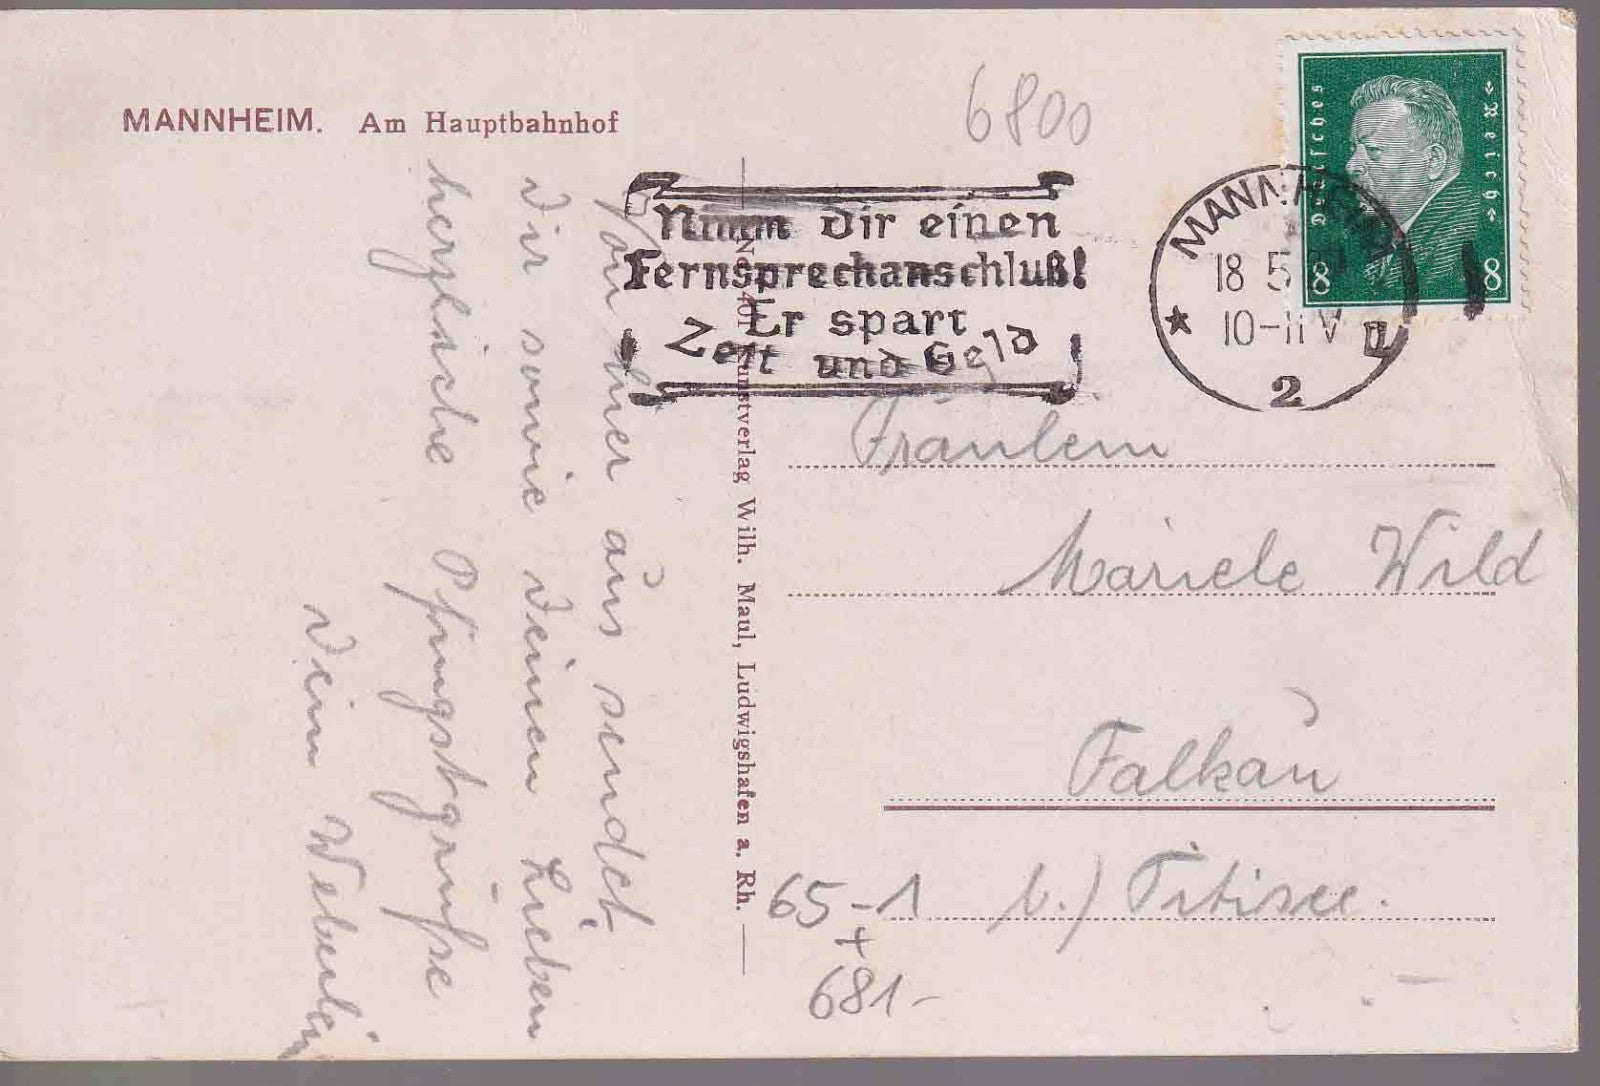 MANNHEIM. Am Hauptbahnhof
6800
Deutsches Reich
8 8
MANNHEIM
18 5
10-11 V
2
Nimm Dir einen
Fernsprechanschluß!
Er spart
Zeit und Geld
Von hier aus sendet
dir sowie deinen Lieben
herzliche Pfingstgrüße
dein
Kunstverlag Wilh. Maul, Ludwigshafen a. Rh.
Fräulein
Mariele Wild
Falkau
b./ Titisee.
65-1
+
681-